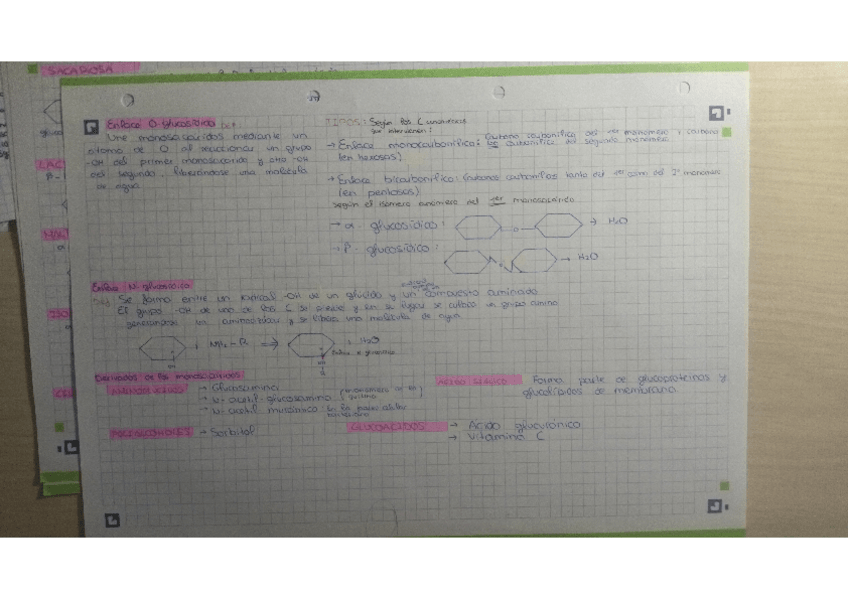 SACAROSA
Enlace O-glucosídico
Une monosacáridos mediante un
átomo de O al reaccionar un grupo
-OH del primer monosacárido y otro -OH
del segundo, liberándose una molécula
de agua.
TIPOS: Según los C anoméricos
que intervienen:
→ Enlace monocarbonílico: Carbono carbonílico del 1er monómero y carbono
no carbonílico del segundo monómero
(en hexosas)
→ Enlace bicarbonílico: Carbonos carbonílicos tanto del 1er como del 2º monómero
(en pentosas)
según el isómero anómero del 1er monosacárido
→ α-glucosídico: O → H2O
→ β-glucosídico: → H2O
Enlace N-glucosídico
Se forma entre un radical -OH de un glúcido y un compuesto aminado
El grupo -OH de uno de los C se pierde y en su lugar se coloca un grupo amino
generándose un aminoazúcar y se libera una molécula de agua
+ NH2-R ⇒ + H2O
Derivados de los monosacáridos
AMINOAZÚCARES → Glucosamina
→ N-acetil-glucosamina
→ N-acetil murámico:
POLIALCOHOLES → Sorbitol
ÁCIDO SIÁLICO Forma parte de glucoproteínas y
glucolípidos de membrana
GLUCOÁCIDOS → Ácido glucurónico
→ Vitamina C